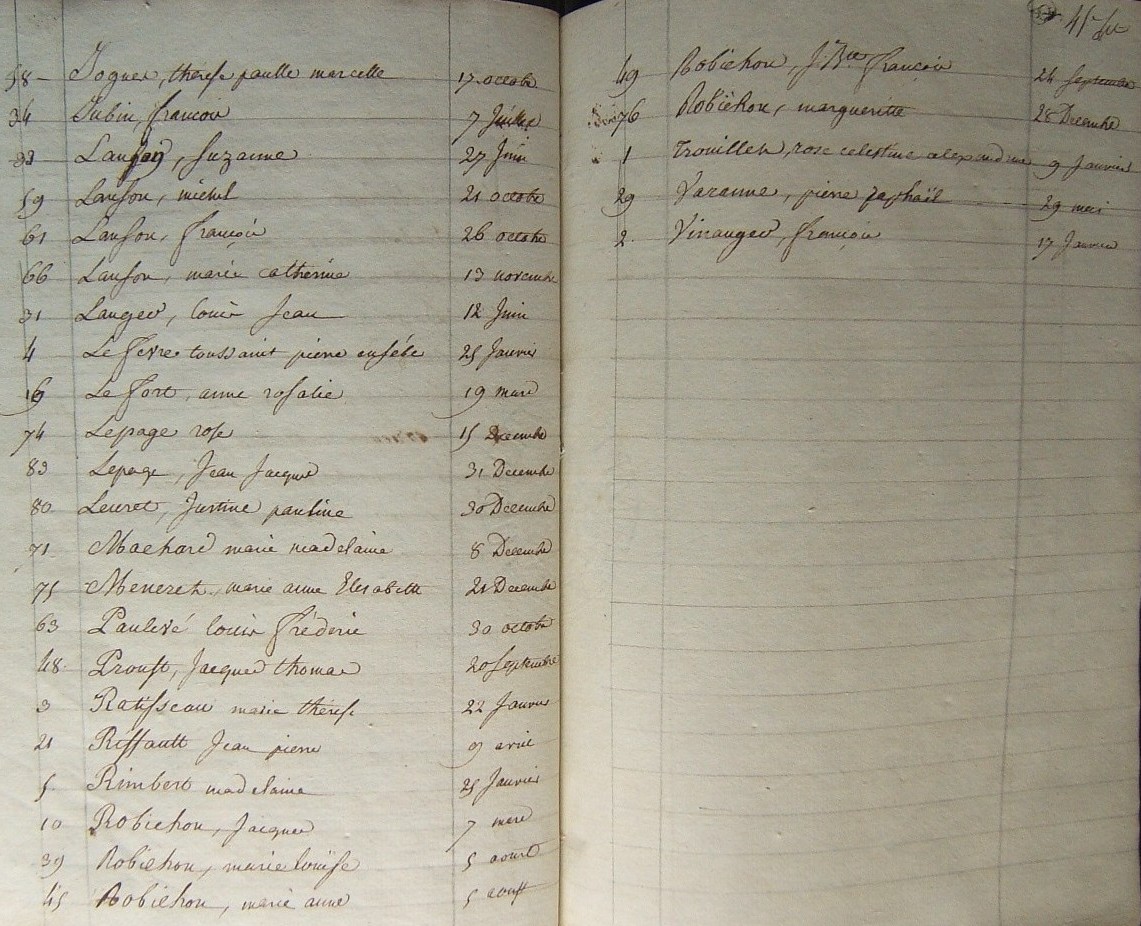 58 Jogues, thérese paulle marcelle 17 octobr
34 Jubin, francois 7 Juillet
Lanson, Suzanne 27 Juin
59 Lanson, michel 21 octobr
61 Lanson, François 26 octobr
66 Lanson, marie catherine 13 novembre
31 Langes, louis Jean 12 Juin
4 Le fevre toussaint pierre eusébe 25 Janvier
16 Le fort, anne rosalie 19 mars
74 Lepage rose 15 Decembre
83 Lepage, Jean Jacques 31 Decembre
80 Leuret, Justine pauline 30 Decembre
71 Machard marie madelaine 8 Decembre
75 Meneret, marie anne Elisabeth 21 Decembre
63 Paulvé louis fréderic 30 octobr
48 Proust, Jacques thomas 20 Septembre
3 Ratisseau marie thérese 22 Janvier
21 Riffault Jean pierre 9 avril
5 Rimbert madelaine 25 Janvier
10 Robichon, Jacques 7 mars
39 Robichon, marie louise 5 aoust
45 Robichon, marie anne 5 aoust
45
49 Robichon, J Bte François 24 Septembre
76 Robichon, margueritte 28 Decembre
1 Trouillet, rose celestine alexandrine 9 Janvier
29 Varanne, pierre raphaël 29 mai
2 Vinauges, François 17 Janvier